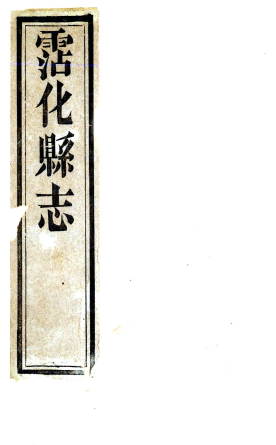 霑化縣志